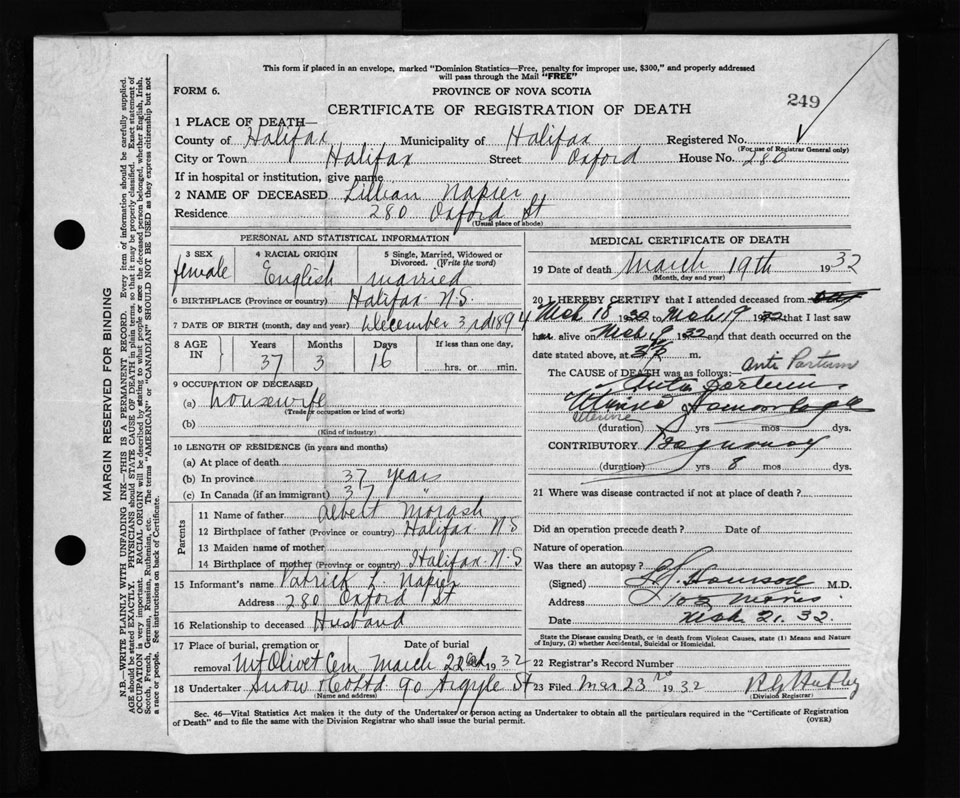 This form if placed in an envelope, marked "Dominion Statistics—Free, penalty for improper use, $300," and properly addressed
will pass through the Mail "FREE"
FORM 6.
PROVINCE OF NOVA SCOTIA
CERTIFICATE OF REGISTRATION OF DEATH
249
1 PLACE OF DEATH—
County of Halifax Municipality of Halifax Registered No.
(For use of Registrar General only)
City or Town Halifax Street Oxford House No. 280
If in hospital or institution, give name
2 NAME OF DECEASED Lillian Napier
Residence 280 Oxford St
(Usual place of abode)
PERSONAL AND STATISTICAL INFORMATION
3 SEX 4 RACIAL ORIGIN 5 Single, Married, Widowed or
Divorced. (Write the word)
female English married
6 BIRTHPLACE (Province or country) Halifax N.S.
7 DATE OF BIRTH (month, day and year) December 3rd 1894
8 AGE IN Years Months Days If less than one day,
37 3 16 hrs. or min.
9 OCCUPATION OF DECEASED
(a) housewife
(Trade or occupation or kind of work)
(b)
(Kind of industry)
10 LENGTH OF RESIDENCE (in years and months)
(a) At place of death
(b) In province 37 years
(c) In Canada (if an immigrant) 37 "
Parents
11 Name of father Albert Morash
12 Birthplace of father (Province or country) Halifax N.S
13 Maiden name of mother
14 Birthplace of mother (Province or country) Halifax N.S
15 Informant's name Patrick L. Napier
Address 280 Oxford St
16 Relationship to deceased Husband
17 Place of burial, cremation or Date of burial
removal Mt Olivet Cem March 22nd 1932
18 Undertaker Snow & Co Ltd 90 Argyle St
(Name and address)
MEDICAL CERTIFICATE OF DEATH
19 Date of death March 19th 1932
(Month, day and year)
20 I HEREBY CERTIFY that I attended deceased from
Mch 18 1932 to Mch 19 1932 that I last saw
h alive on Mch 1932 and that death occurred on the
date stated above, at m.
The CAUSE of DEATH was as follows:— Anti Partum
Anti Partum
Uterine Hemorrhage
Uterine
(duration) yrs mos. dys.
CONTRIBUTORY Pregnancy
(duration) yrs 8 mos. dys.
21 Where was disease contracted if not at place of death?
Did an operation precede death? Date of
Nature of operation
Was there an autopsy?
(Signed) M.D.
Address 103
Date Mch 21. 32.
State the Disease causing Death, or in death from Violent Causes, state (1) Means and Nature
of Injury, (2) whether Accidental, Suicidal or Homicidal.
22 Registrar's Record Number
23 Filed Mar 23rd 1932
(Division Registrar)
Sec. 46—Vital Statistics Act makes it the duty of the Undertaker or person acting as Undertaker to obtain all the particulars required in the "Certificate of Registration
of Death" and to file the same with the Division Registrar who shall issue the burial permit.
(OVER)
MARGIN RESERVED FOR BINDING
N.B.—WRITE PLAINLY WITH UNFADING INK—THIS IS A PERMANENT RECORD. Every item of information should be carefully supplied.
AGE should be stated EXACTLY. PHYSICIANS should STATE CAUSE OF DEATH in plain terms, so that it may be properly classified. Exact statement of
OCCUPATION is very important. RACIAL ORIGIN will be described by stating to what people or race the deceased person belonged, whether English, Irish,
Scotch, French, German, Russian, Ruthenian, etc. The terms "AMERICAN" or "CANADIAN" SHOULD NOT BE USED as they express citizenship but not
a race or people. See instructions on back of Certificate.